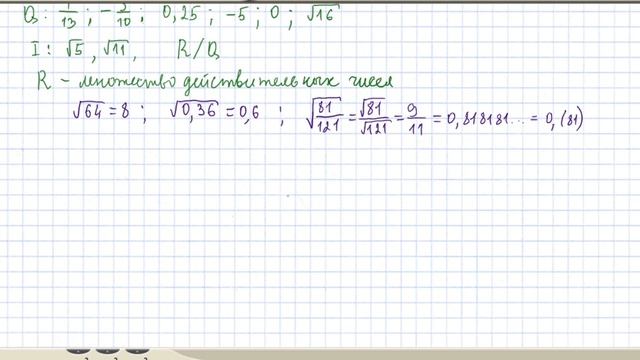 Q: 1/13; -3/10; 0,25; -5; 0; √16
I: √5, √11, R/Q
R - множество действительных чисел
√64 = 8; √0,36 = 0,6; √81/121 = √81/√121 = 9/11 = 0,818181... = 0,(81)